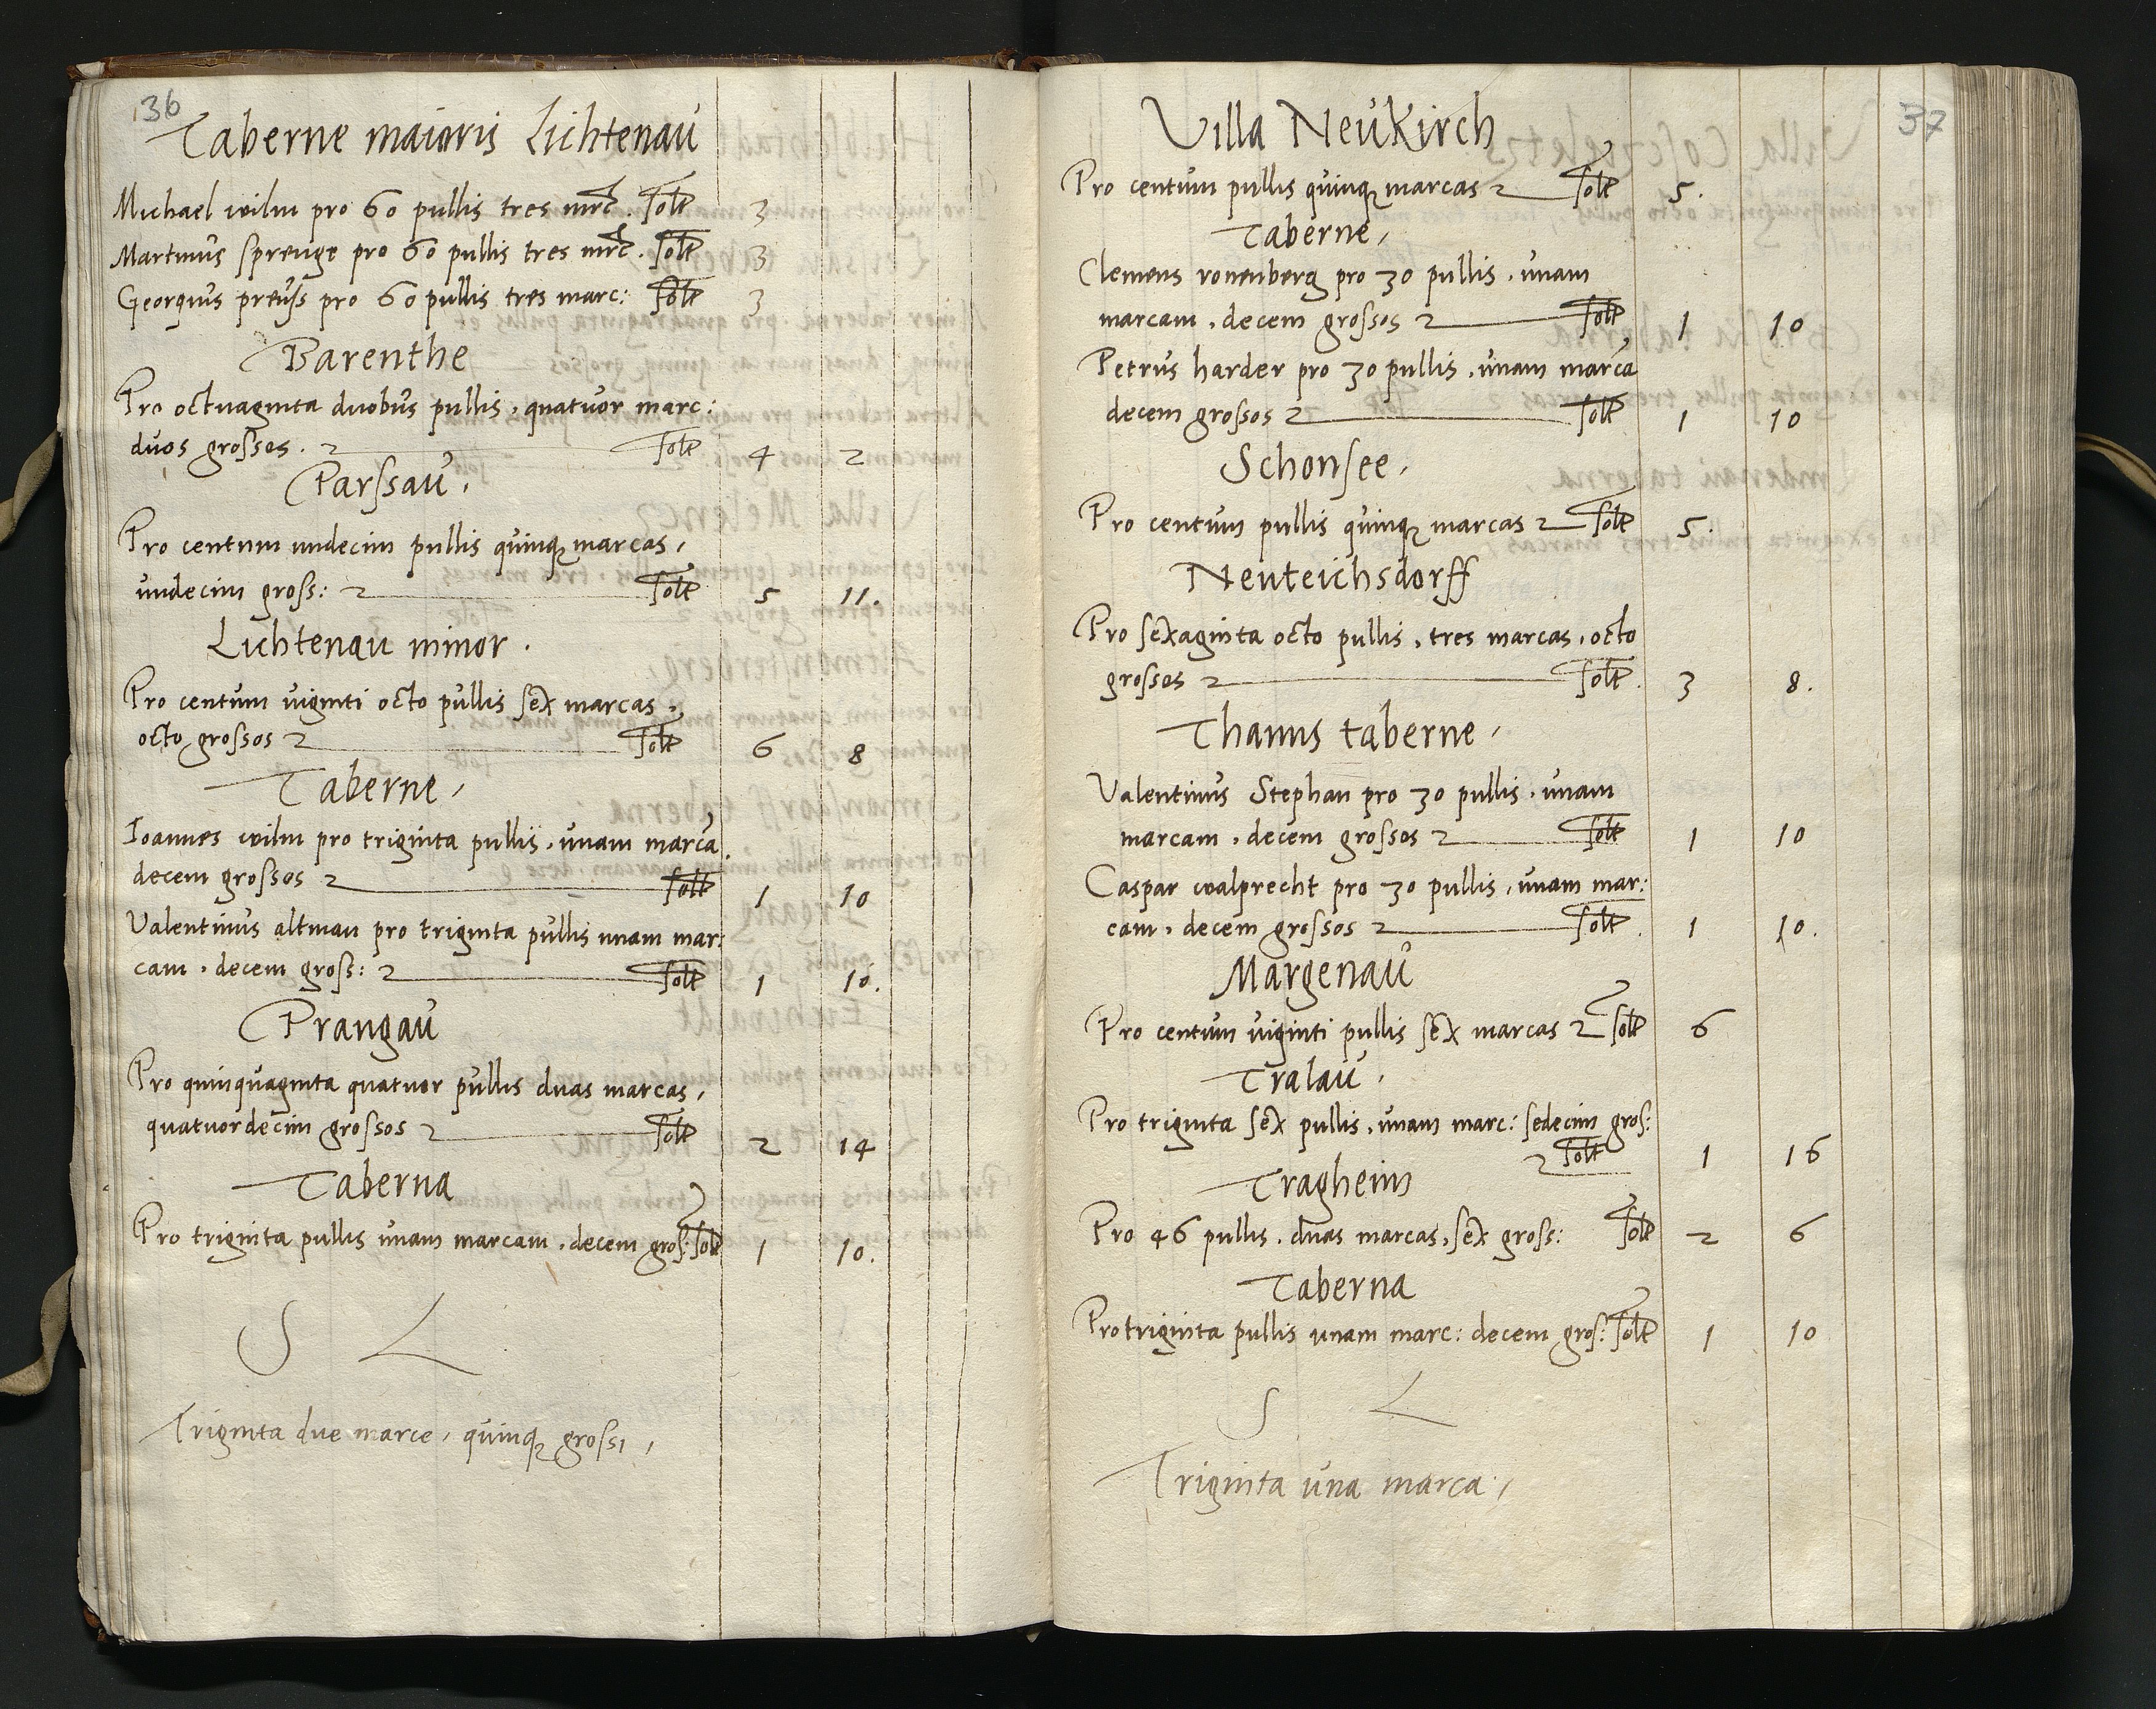 36
Taberne maioris Lichtenau
Michael wilm pro 60 pullis tres mrc. Solt 3
Martinus sprenge pro 60 pullis tres mrc. Solt 3
Georgius preuss pro 60 pullis tres marc: Solt 3
Barenthe
Pro octuaginta duobus pullis, quatuor marc:
duos grosses. Solt 4 2
Parssau,
Pro centum undecim pullis quinq marcas,
undecim gross: Solt 5 11.
Lichtenau minor.
Pro centum viginti octo pullis sex marcas,
octo grossos Solt 6 8
Taberne,
Ioannes wilm pro triginta pullis, unam marcã.
decem grossos Solt 1 10
Valentinus altman pro triginta pullis unam mar:
cam, decem gross: Solt 1 10.
Prangau
Pro quinquaginta quatuor pullis duas marcas,
quatuordecim grossos Solt 2 14
Taberna
Pro triginta pullis unam marcam, decem gros: Solt 1 10.
S L
Triginta due marce, quinq grossi,
37
Villa Neukirch
Pro centum pullis quinq marcas Solt 5.
Taberne,
Clemens ronenberg pro 30 pullis, unam
marcam, decem grossos Solt 1 10
Petrus harder pro 30 pullis, unam marcã
decem grossos Solt 1 10
Schonsee,
Pro centum pullis quinq marcas Solt 5.
Neuteichsdorff
Pro sexaginta octo pullis, tres marcas, octo
grosses Solt. 3 8.
Thanns taberne,
Valentinus Stephan pro 30 pullis, unam
marcam, decem grossos Solt 1 10
Caspar walprecht pro 30 pullis, unam mar:
cam, decem grossos Solt. 1 10.
Margenau
Pro centum viginti pullis sex marcas Solt 6
Tralau,
Pro triginta sex pullis, unam marc: sedecim gros:
Solt 1 16
Tragheim
Pro 46 pullis, duas marcas, sex gross: Solt 2 6
Taberna
Pro triginta pullis unam marc: decem gros: Solt 1 10
S L
Triginta una marca,